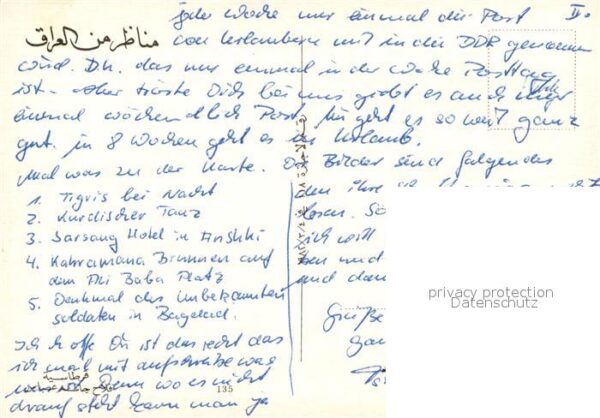 jede Woche nur einmal die Post II.
von Urlaubern mit in die DDR genommen
wird. D.h. das nur einmal in der Woche Posttag
ist. tröste Dich bei uns gibt es auch nur
einmal wöchendlich Post. Mir geht es so weit ganz
gut. in 8 Wochen geht es in Urlaub.
Mal was zu der Karte. Die Bilder sind folgendes
1. Tigris bei Nacht
2. Kurdischer Tanz
3. Sarsang Hotel in Anshki
4. Kahramana Brunnen auf
dem Ali Baba Platz
5. Denkmal des unbekannten
Soldaten in Bagdad.
Ich hoffe Dir ist das recht das
ich mal mit aufschreibe was
denn wo es nicht
drauf steht kann man ja
den ihre
lesen.
ich will
und
und dan
Grüße
مناظر من العراق
135
privacy protection
Datenschutz